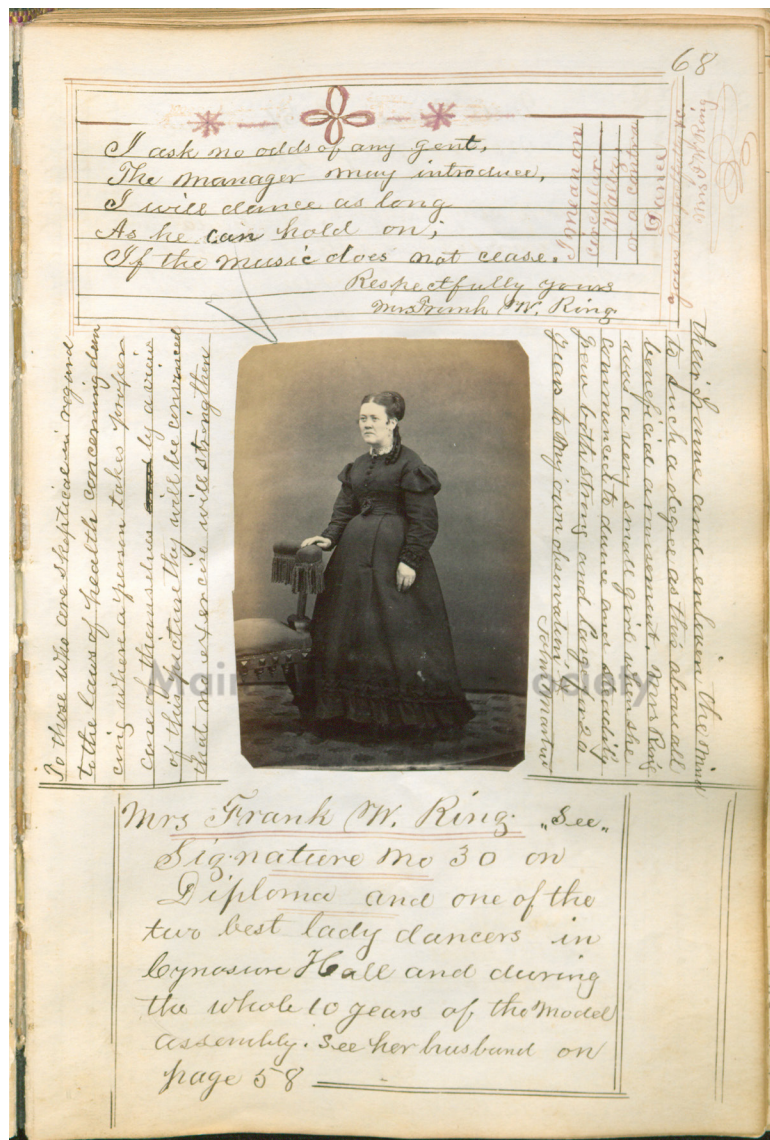 68
I ask no odds of any gent,
The manager may introduce,
I will dance as long
As he can hold on;
If the music does not cease.
Respectfully yours
Mrs Frank W. Ring
I mean on
circular
Waltz
or a contra
Dance
To those who are skeptical in regard
to the laws of health concerning dan
cing where a person takes proper
care of themselves by a view
of this picture they will be convinced
that such exercise will strengthen
their frame and enliven the mind
to such a degree as this above all
beneficial amusement. Mrs Ring
was a very small girl when she
commenced to dance and steadily
grew both strong and large for 20
years to my own observation
John Martin
Mrs Frank W. Ring. "See"
Signature No 30 on
Diploma and one of the
two best lady dancers in
Cynosure Hall and during
the whole 10 years of the Model
assembly. See her husband on
page 58